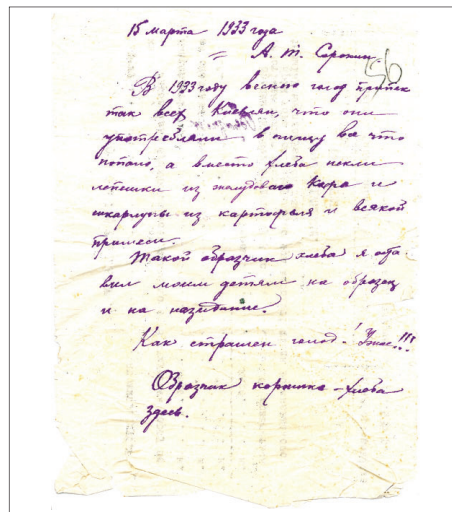 15 марта 1933 года
= А. Т. Сорокин.
56
В 1933 году весною голод припек
так всех Киевлян, что они
употребляли в пищу все что
попало, а вместо хлеба пекли
лепешки из желудевого кофе и
шкарлупы из картофеля и всякой
примеси.
Такой образчик хлеба я оста
вил моим детям на образец
и на назидание.
Как страшен голод! Ужас!!!
Образчик коржика-хлеба
здесь.